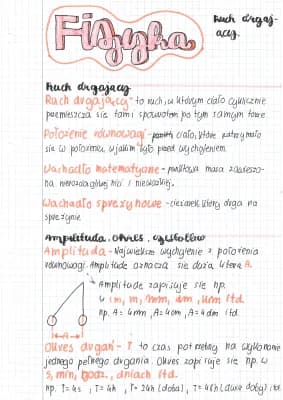 Fizyka
Ruch drgają-
cy.
Ruch drgający
Ruch drgający - to ruch, w którym ciało cyklicznie
przemieszcza się tam i spowrotem po tym samym torze
Położenie równowagi - ciało, które zatrzymało
się w położeniu, w jakim było przed wychyleniem.
Wachadło matematyczne - punktowa masa zawieszo-
na nierozciągliwej nici i nieważkiej.
Wachadło sprężynowe - ciężarek, który drga na
sprężynie.
Amplituda, okres, częstotliw
Amplituda - Największe wychylenie z położenia
równowagi. Amplitudę oznacza się dużą literą A.
Amplitudę zapisuje się np.
w cm, m, mm, dm, km itd.
np. A = 4mm, A = 4cm, A = 4dm itd.
A
Okres drgań - T to czas potrzebny na wykonanie
jednego pełnego drgania. Okres zapisuje się np. w
s, min, godz., dniach itd.
np. T = 4s, T = 4h, T = 24h (doba), T = 48h (dwie doby) itd.